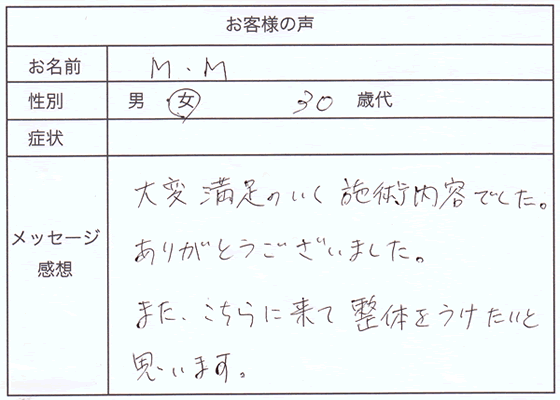 お客様の声
お名前 M.M
性別 男 女 30 歳代
症状
メッセージ
感想
大変満足のいく施術内容でした。
ありがとうございました。
また、こちらに来て整体をうけたいと
思います。